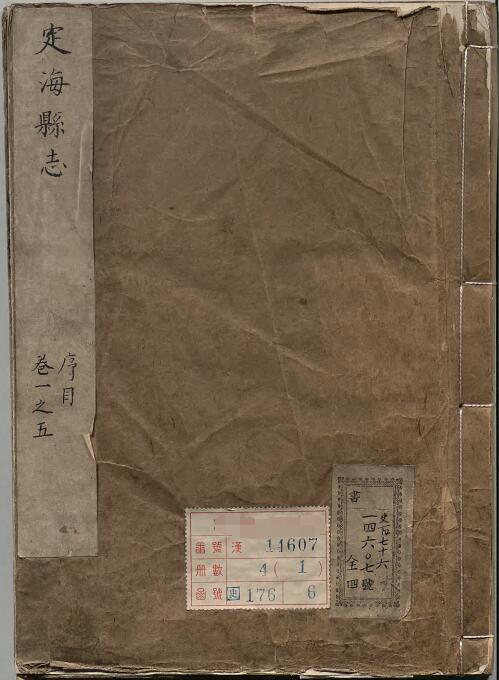 定海縣志
序目
卷一之五
番號 漢 14607
册數 4(1)
函號 史 176 6
書
一四六〇七號
全四